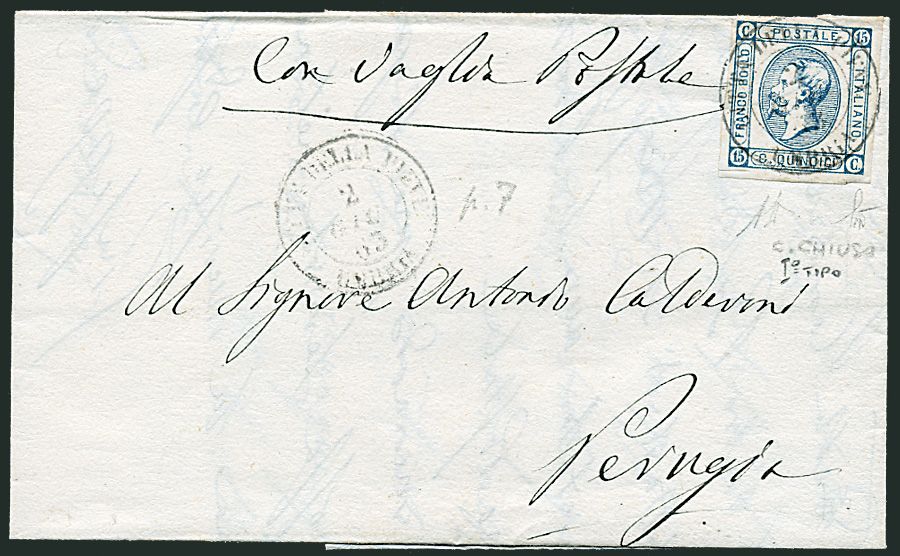 Con Vaglia Postale
C POSTALE 15
FRANCO BOLLO
ITALIANO
15 C. QUINDICI C.
DELLA PIEVE
2
GIU
63
UMBRIA
C. CHIUSO
I° TIPO
Al Signore Antonio Calderoni
Perugia